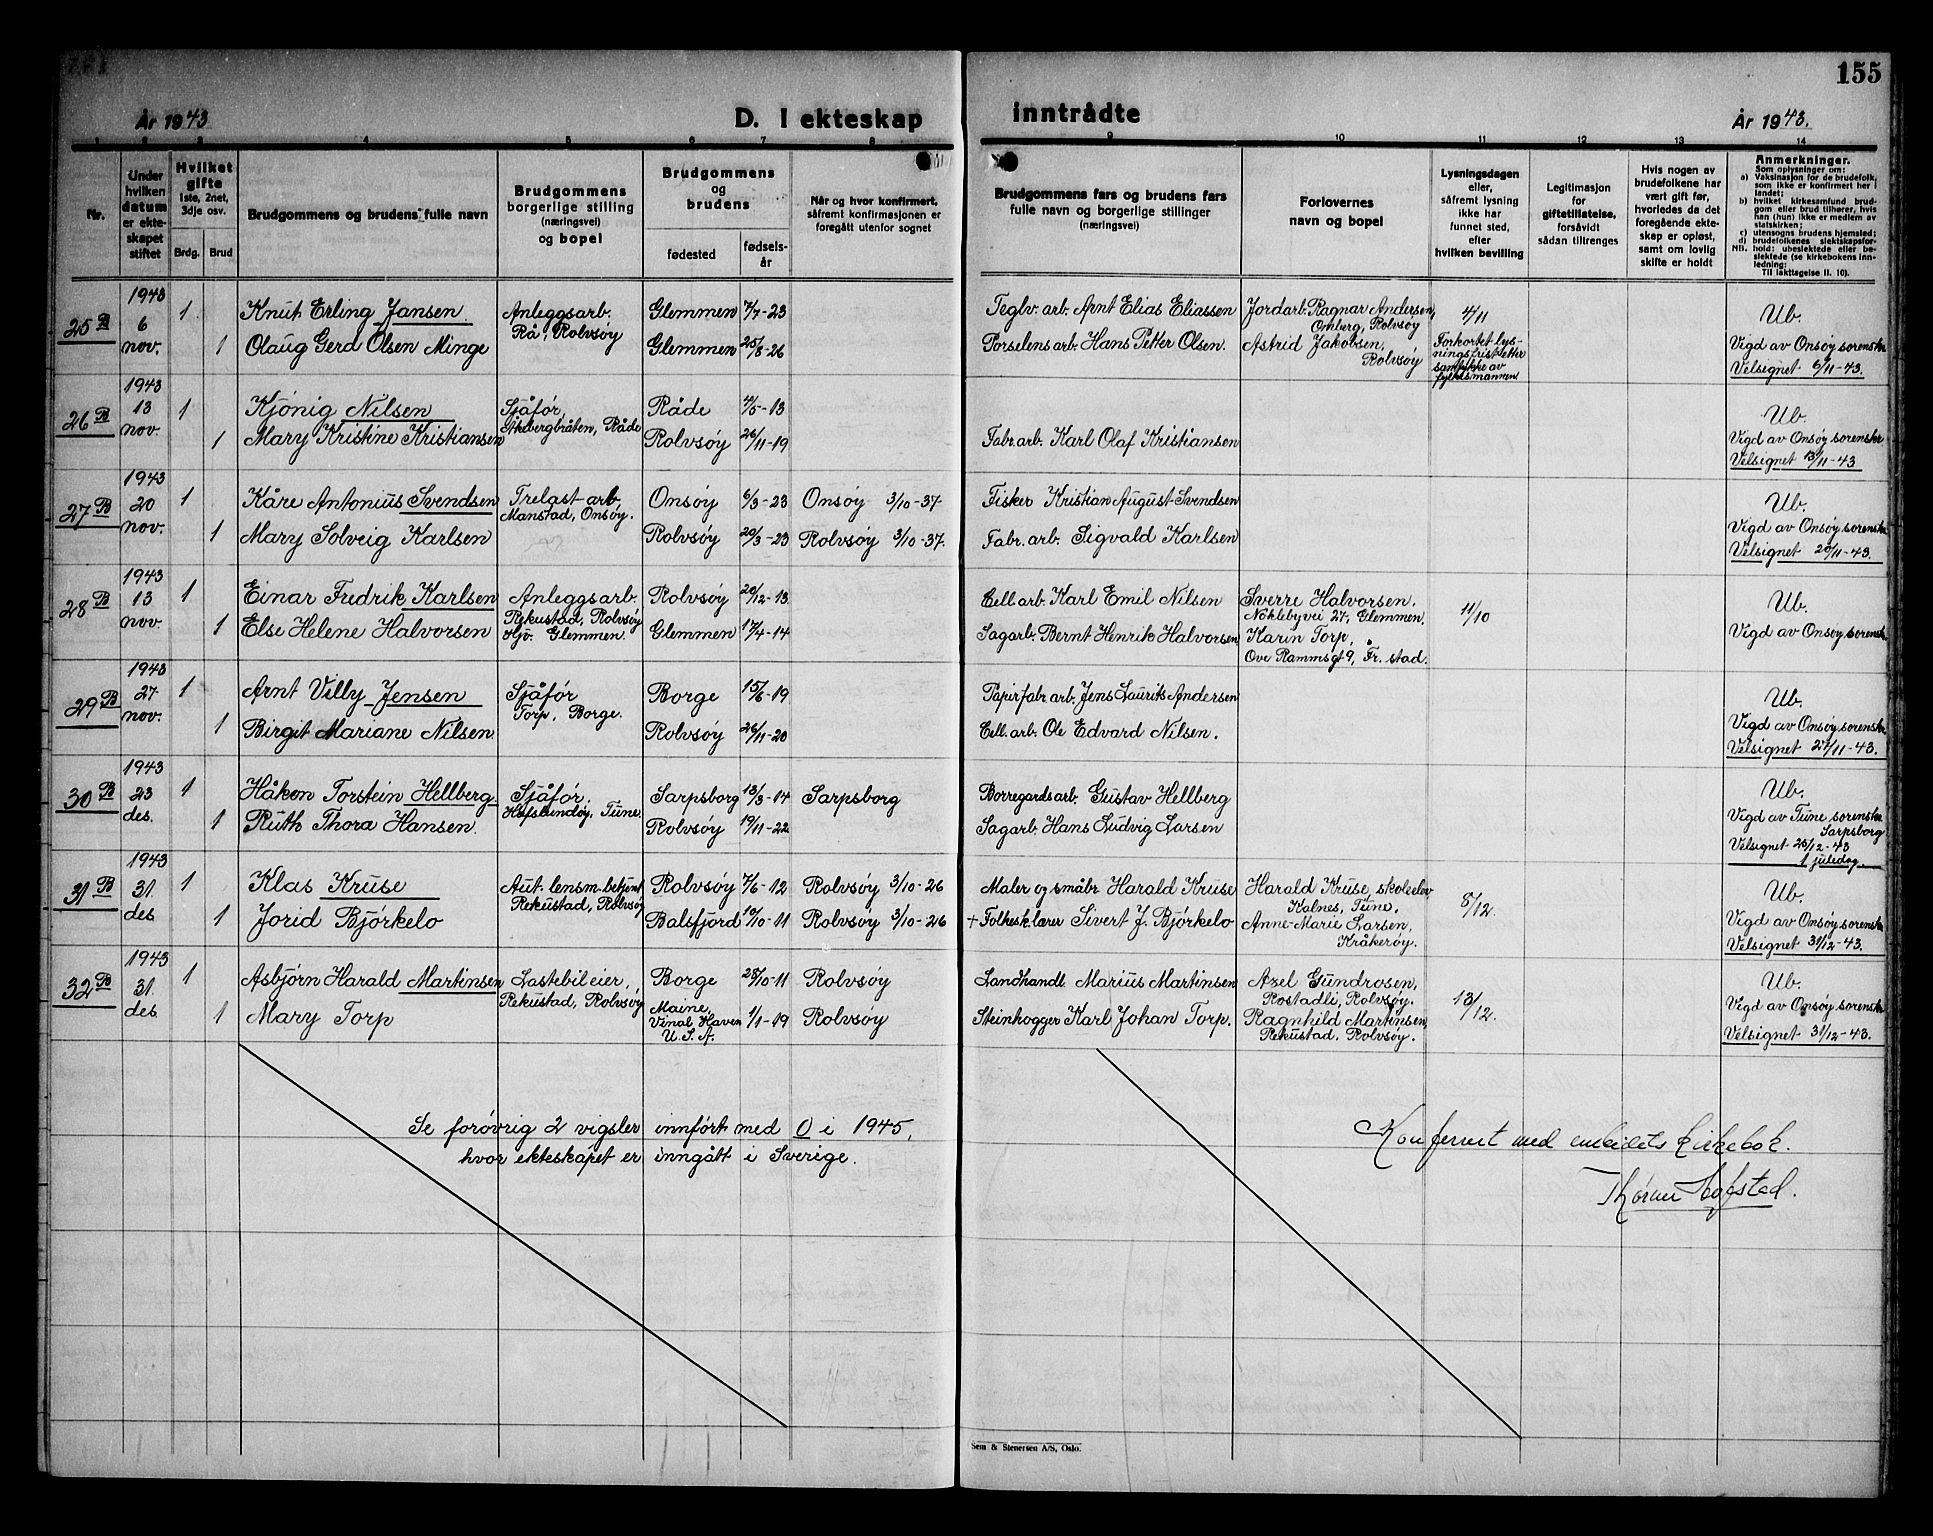 155
År 1943
D. I ekteskap
inntrådte
År 1943.
1 2 3 4 5 6 7 8
9 10 11 12 13 14
Nr.
Under
hvilken
datum
er ekte-
skapet
stiftet
Hvilket
gifte
1ste, 2net,
3dje osv.
Brdg. Brud
Brudgommens og brudens fulle navn
Brudgommens
borgerlige stilling
(næringsvei)
og bopel
Brudgommens
og
brudens
fødested
fødsels-
år
Når og hvor konfirmert,
såfremt konfirmasjonen er
foregått utenfor sognet
Brudgommens fars og brudens fars
fulle navn og borgerlige stillinger
(næringsvei)
Forlovernes
navn og bopel
Lysningsdagen
eller,
såfremt lysning
ikke har
funnet sted,
efter
hvilken bevilling
Legitimasjon
for
giftetillatelse,
forsåvidt
sådan tiltrenges
Hvis nogen av
brudefolkene har
vært gift før,
hvorledes da det
foregående ekte-
skap er opløst,
samt om lovlig
skifte er holdt
Anmerkninger.
Som oplysninger om:
a) Vaksinasjon for de brudefolk,
som ikke er konfirmert her i
landet;
b) hvilket kirkesamfund brud-
gom eller brud tilhører, hvis
han (hun) ikke er medlem av
statskirken;
c) utensogns brudens hjemsted;
d) brudefolkenes slektskapsfor-
NB. hold: ubeslektede eller be-
slektede (se kirkebokens inn-
ledning:
Til iakttagelse II. 10).
25 B 1943 6 nov. 1 Knut Erling Jansen Anleggsarb. Rå, Rolvsöy Glemmen 7/7-23 Teglv. arb. Arnt Elias Eliassen Jordarb. Ragnar Andersen, Omberg, Rolvsöy 4/11 Ub.
1 Olaug Gerd Olsen Minge Glemmen 25/8-26 Porselensarb. Hans Petter Olsen. Astrid Jakobsen, Rolvsöy Forkortet lysningsfrist etter samtykke av fylkesmannen Vigd av Onsöy sorenskr. Velsignet 6/11-43.
26 B 1943 13 nov. 1 Kjönig Nilsen Sjåför, Åkebergbråten, Råde Råde 4/5-13 Ub.
1 Mary Kristine Kristiansen Rolvsöy 26/11-19 Fabr. arb. Karl Olaf Kristiansen Vigd av Onsöy sorenskr Velsignet 13/11-43
27 B 1943 20 nov. 1 Kåre Antonius Svendsen Trelast-arb. Manstad, Onsöy. Onsöy 6/3-23 Onsöy 3/10-37 Fisker Kristian August Svendsen Ub.
1 Mary Solveig Karlsen Rolvsöy 20/3-23 Rolvsöy 3/10-37. Fabr. arb. Sigvald Karlsen Vigd av Onsöy sorenskr. Velsignet 20/11-43.
28 B 1943 13 nov. 1 Einar Fredrik Karlsen Anleggsarb. Rekustad, Rolvsöy Rolvsöy 20/12-13. Cell. arb. Karl Emil Nilsen Sverre Halvorsen, Noklebyvei 27, Glemmen. 11/10 Ub.
1 Else Helene Halvorsen Hjv. Glemmen. Glemmen 17/4-14 Sagarb. Bernt Henrik Halvorsen Karin Torp, Ove Rammsgt 9, Fr. stad. Vigd av Onsöy sorenskr.
29 B 1943 27 nov. 1 Arnt Villy Jensen Sjåför Torp, Borge. Borge 15/6-19 Papirfabr arb. Jens Laurits Andersen Ub.
1 Birgit Mariane Nilsen Rolvsöy 26/11-20 Cell. arb. Ole Edvard Nilsen. Vigd av Onsöy sorenskr Velsignet 27/11-43.
30 B 1943 23 des. 1 Håkon Torstein Hellberg Sjåför, Hafslundöy, Tune. Sarpsborg 13/3-14 Sarpsborg Borregardsarb. Gustav Hellberg Ub.
1 Ruth Thora Hansen. Rolvsöy 19/11-22 Sagarb. Hans Ludvig Larsen Vigd av Tune sorenskr Sarpsborg Velsignet 25/12-43 1 juledag.
31 B 1943 31. des 1 Klas Kruse Aut. lensm. betjent Rekustad, Rolvsöy Rolvsöy 7/6-12 Rolvsöy 3/10-26 Maler og småbr. Harald Kruse Harald Kruse, skoleelev Kalnes, Tune, 8/12. Ub.
1 Jorid Björkelo Balsfjord 10/10-11 Rolvsöy 3/10-26 + Folkesk.lærer Sivert J. Björkelo Anne-Marie Larsen, Kråkeröy. Vigd av Onsöy sorenskr. Velsignet 31/12-43.
32 B 1943 31. des. 1 Asbjörn Harald Martinsen Lastebileier, Rekustad, Rolvsöy Borge 28/10-11 Rolvsöy Landhandl. Marius Martinsen Axel Gundrosen, Rostadli, Rolvsöy. 13/12. Ub.
1 Mary Torp Maine, Vinal Haven U. S. A. 1/1-19 Rolvsöy Steinhogger Karl Johan Torp. Ragnhild Martinsen, Rekustad, Rolvsöy. Vigd av Onsöy sorenskr. Velsignet 31/12-43.
Se forövrig 2 vigsler innfört med 0 i 1945,
hvor ekteskapet er inngått i Sverige.
Konferert med embedets kirkebok.
Sem & Stenersen A/S, Oslo.